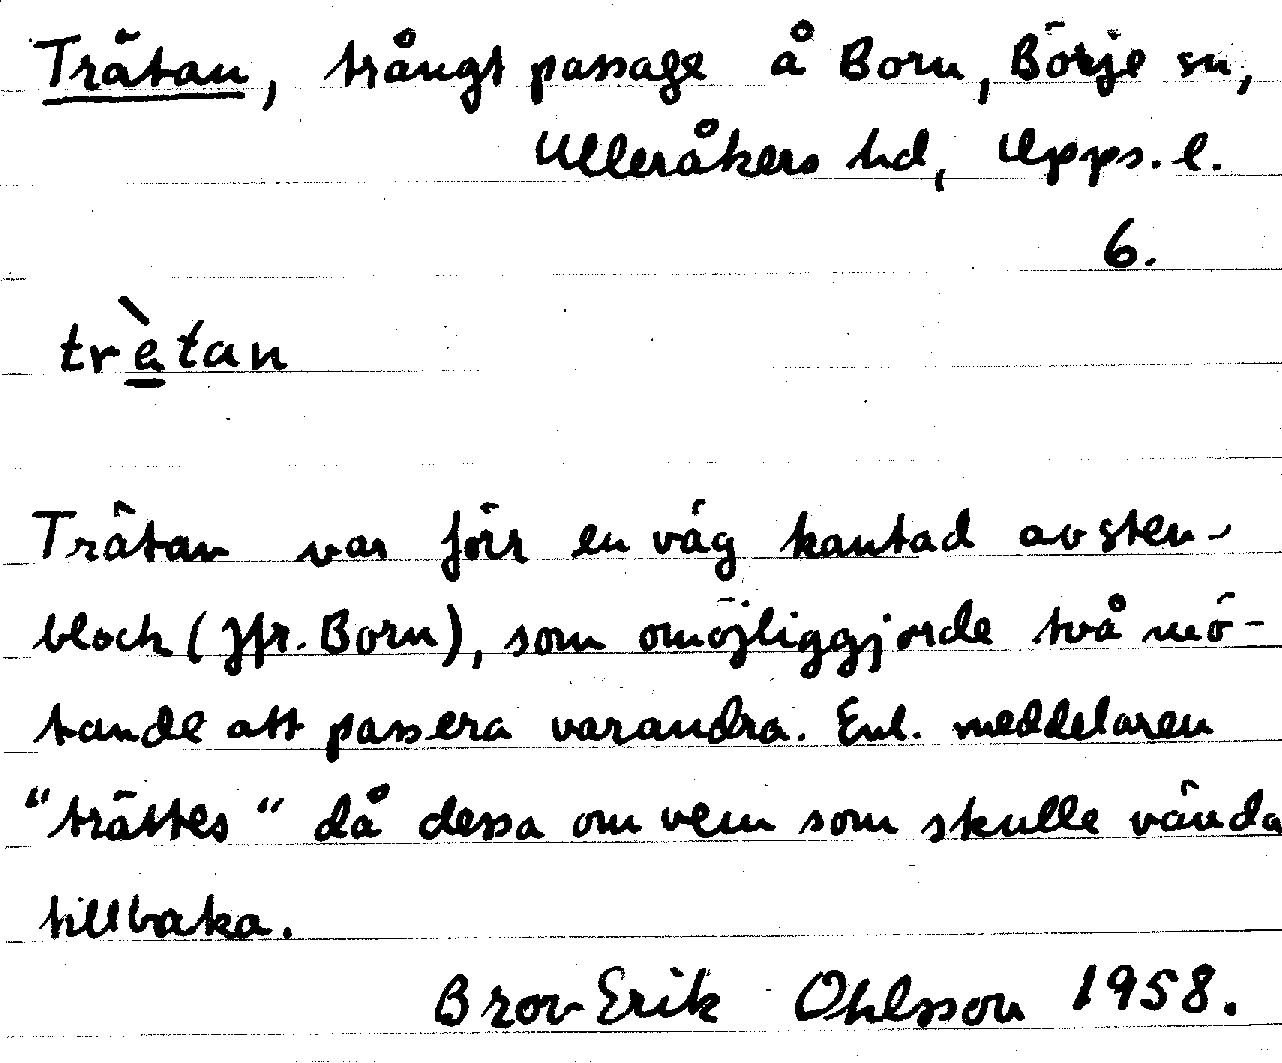 Trätan, trångt passage å Born, Börje sn,
Ulleråkers hd, Upps. l.
6.
trètan
Trätan var förr en väg kantad av sten-
block (jfr. Born), som omöjliggjorde två mö-
tande att passera varandra. Enl. meddelaren
"trättes" då dessa om vem som skulle vända
tillbaka.
Bror Erik Ohlsson 1958.